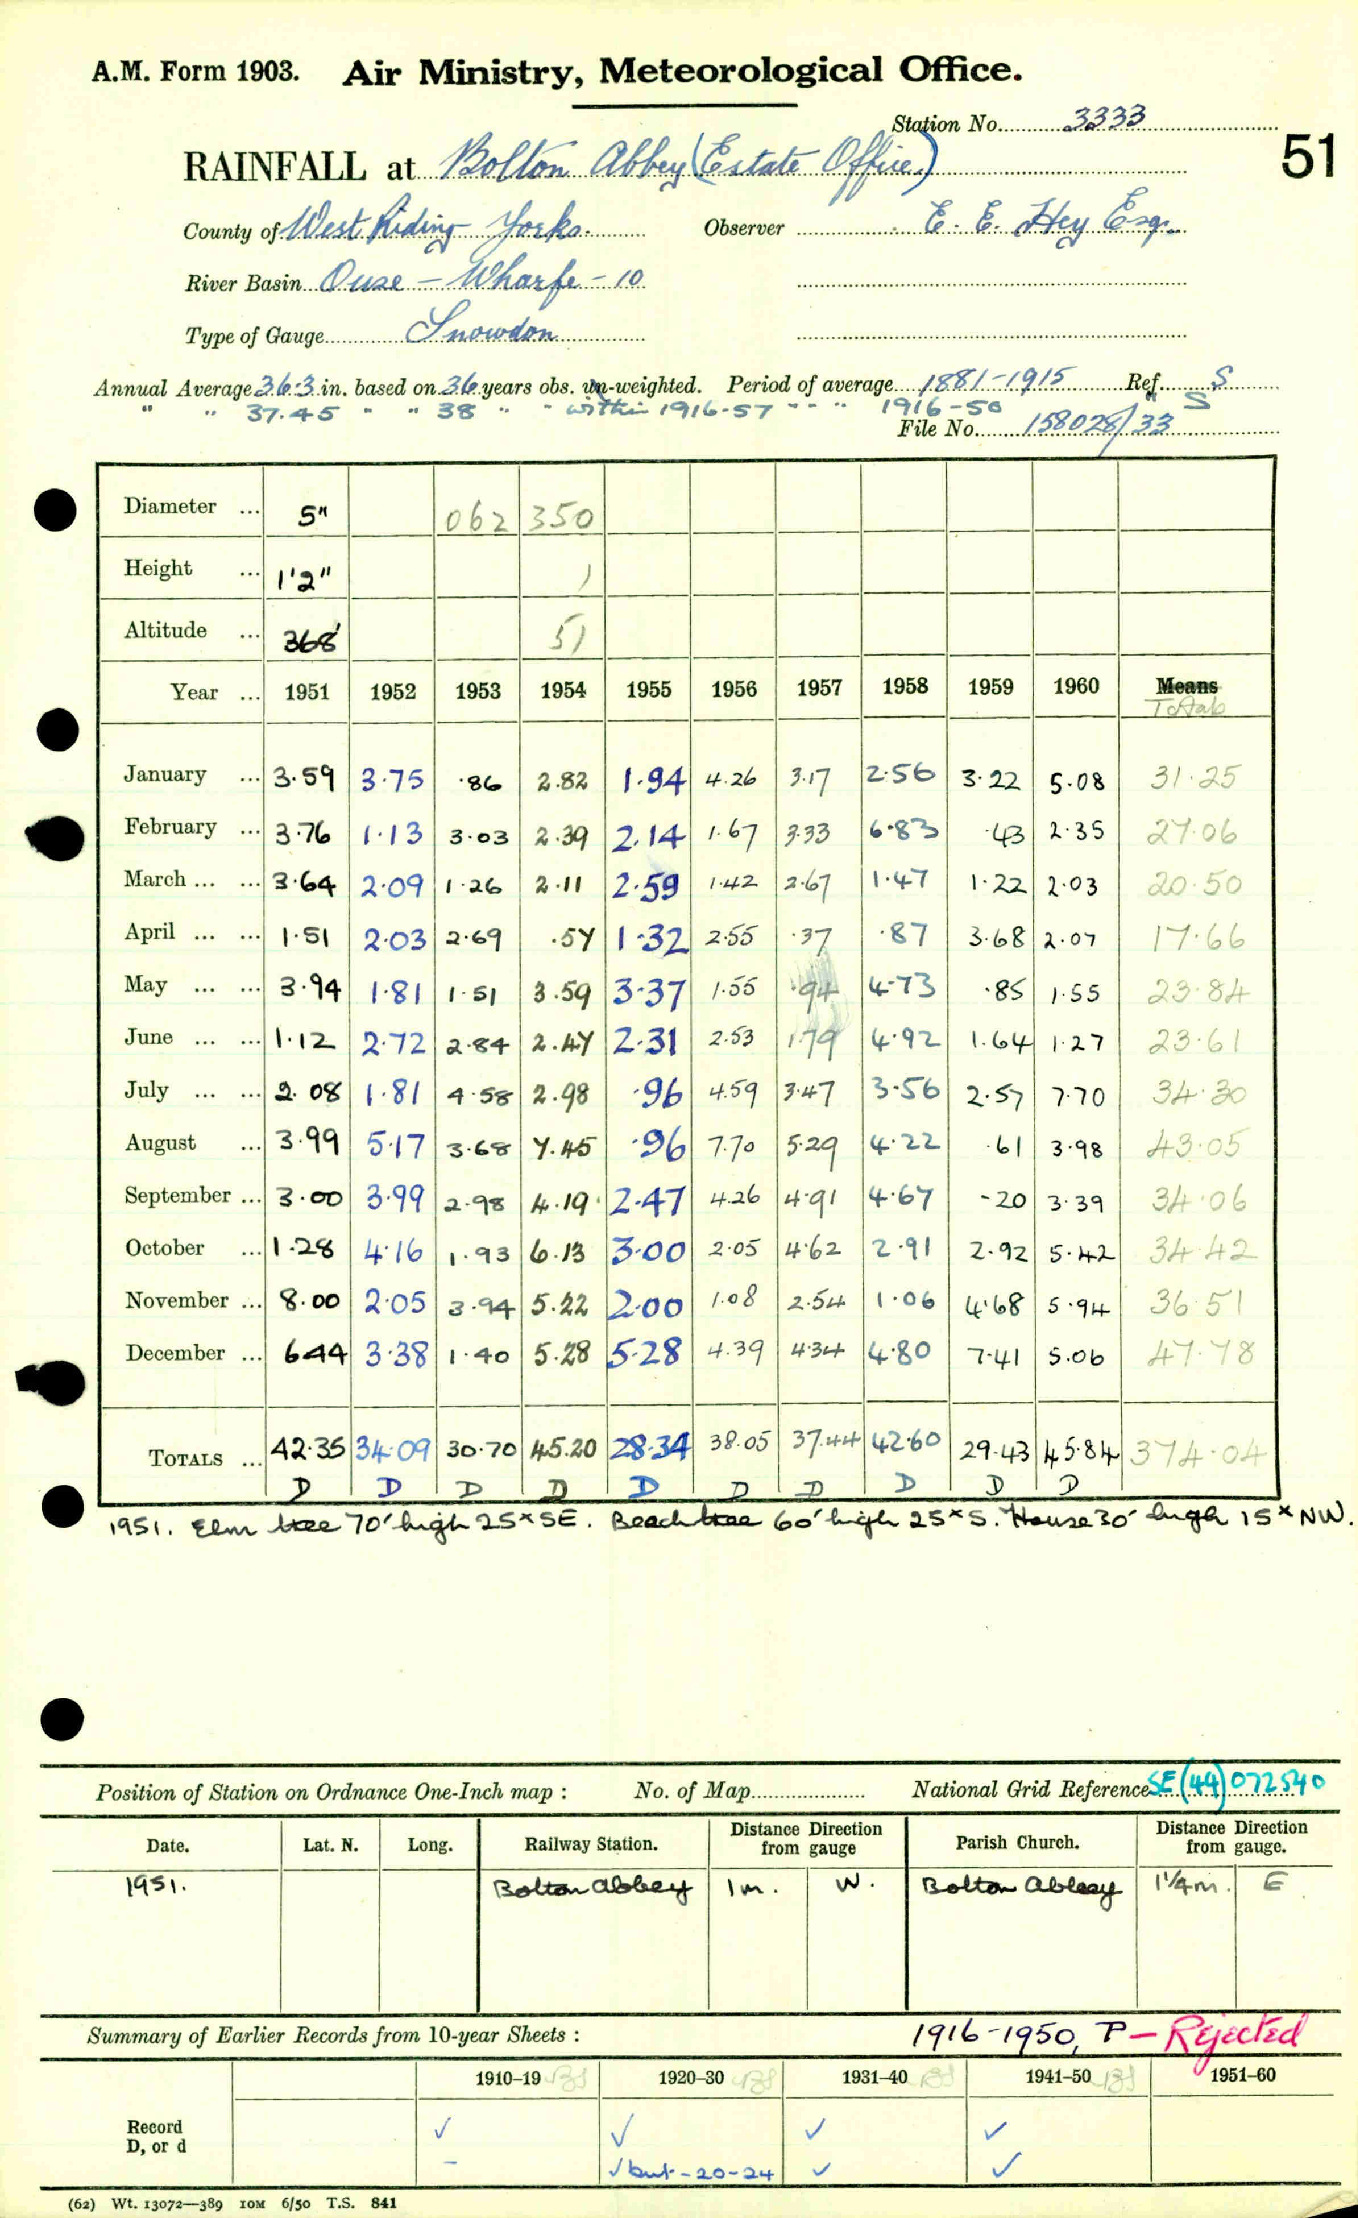 A.M. Form 1903. Air Ministry, Meteorological Office.
Station No. 3333
51
RAINFALL at Bolton Abbey (Estate Office.)
County of West Riding Yorks. Observer E. E. Hey Esq.
River Basin Ouse - Wharfe - 10
Type of Gauge Snowdon
Annual Average 36.3 in. based on 36 years obs. un-weighted. Period of average 1881-1915 Ref. S
" " 37.45 " " 38 " " within 1916-57 " " " 1916-50 " S
File No. 158028/33
Diameter ... 5" 062 350
Height ... 1'2" 1
Altitude ... 368' 51
Year ... 1951 1952 1953 1954 1955 1956 1957 1958 1959 1960 Means
Totals
January ... 3.59 3.75 .86 2.82 1.94 4.26 3.17 2.56 3.22 5.08 31.25
February ... 3.76 1.13 3.03 2.39 2.14 1.67 3.33 6.83 .43 2.35 27.06
March ... ... 3.64 2.09 1.26 2.11 2.59 1.42 2.67 1.47 1.22 2.03 20.50
April ... ... 1.51 2.03 2.69 .57 1.32 2.55 .37 .87 3.68 2.07 17.66
May ... ... 3.94 1.81 1.51 3.59 3.37 1.55 .94 4.73 .85 1.55 23.84
June ... ... 1.12 2.72 2.84 2.47 2.31 2.53 1.79 4.92 1.64 1.27 23.61
July ... ... 2.08 1.81 4.58 2.98 .96 4.59 3.47 3.56 2.57 7.70 34.30
August ... 3.99 5.17 3.68 7.45 .96 7.70 5.29 4.22 .61 3.98 43.05
September ... 3.00 3.99 2.98 4.19 2.47 4.26 4.91 4.67 .20 3.39 34.06
October ... 1.28 4.16 1.93 6.13 3.00 2.05 4.62 2.91 2.92 5.42 34.42
November ... 8.00 2.05 3.94 5.22 2.00 1.08 2.54 1.06 4.68 5.94 36.51
December ... 6.44 3.38 1.40 5.28 5.28 4.39 4.34 4.80 7.41 5.06 47.78
TOTALS ... 42.35 34.09 30.70 45.20 28.34 38.05 37.44 42.60 29.43 45.84 374.04
D D D D D D D D D D
1951. Elm tree 70' high 25x SE. Beech tree 60' high 25x S. House 30' high 15x NW.
Position of Station on Ordnance One-Inch map : No. of Map National Grid Reference SE (44) 072540
Date. Lat. N. Long. Railway Station. Distance from Direction gauge Parish Church. Distance from Direction gauge.
1951. Bolton Abbey 1m. W. Bolton Abbey 1¼m. E
Summary of Earlier Records from 10-year Sheets : 1916-1950, P - Rejected
1910-19 1920-30 1931-40 1941-50 1951-60
Record ✓ ✓ ✓ ✓
D, or d - ✓ but -20-24 ✓ ✓
(62) Wt. 13072—389 10M 6/50 T.S. 841